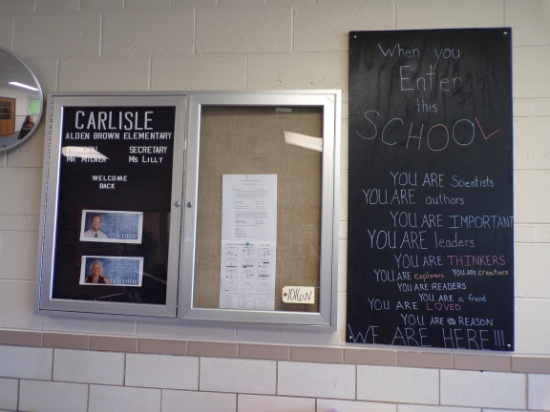 CARLISLE
ALDEN BROWN ELEMENTARY
PRINCIPAL SECRETARY
MS LILLY
WELCOME
BACK
welcome
welcome
When you
Enter
this
SCHOOL
YOU ARE Scientists
YOU ARE authors
YOU ARE IMPORTANT
YOU ARE leaders
YOU ARE THINKERS
YOU ARE explorers YOU ARE creators
YOU ARE READERS
YOU ARE a friend
YOU ARE LOVED
YOU ARE REASON
WE ARE HERE!!!